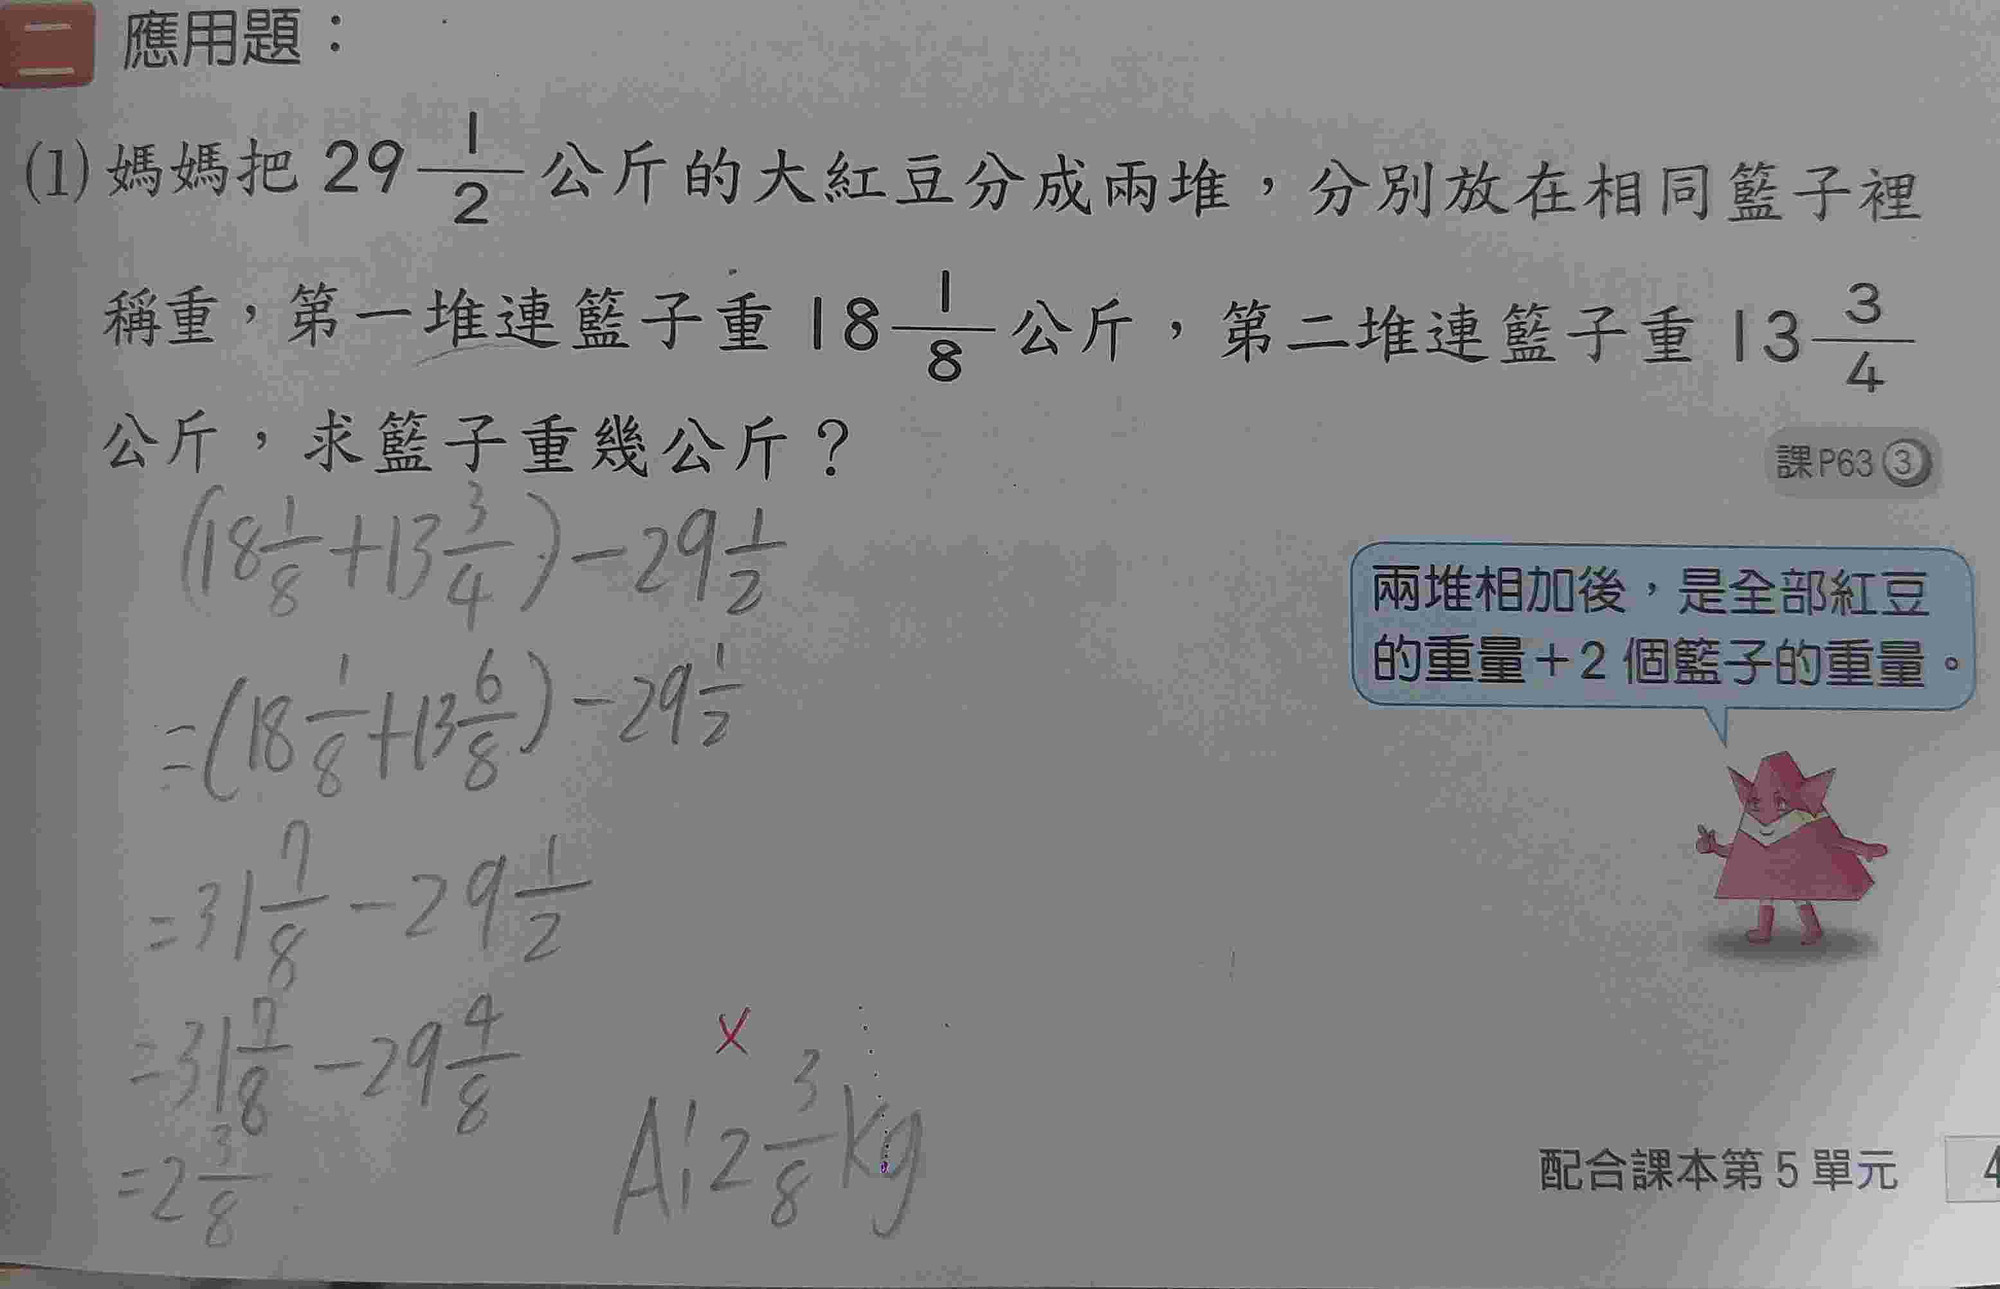 二 應用題：
(1) 媽媽把 29 1/2 公斤的大紅豆分成兩堆，分別放在相同籃子裡
稱重，第一堆連籃子重 18 1/8 公斤，第二堆連籃子重 13 3/4
公斤，求籃子重幾公斤？
課P63 ③
(18 1/8 + 13 3/4) - 29 1/2
兩堆相加後，是全部紅豆
的重量＋2 個籃子的重量。
= (18 1/8 + 13 6/8) - 29 1/2
= 31 7/8 - 29 1/2
= 31 7/8 - 29 4/8
= 2 3/8
A: 2 3/8 kg
配合課本第 5 單元
4